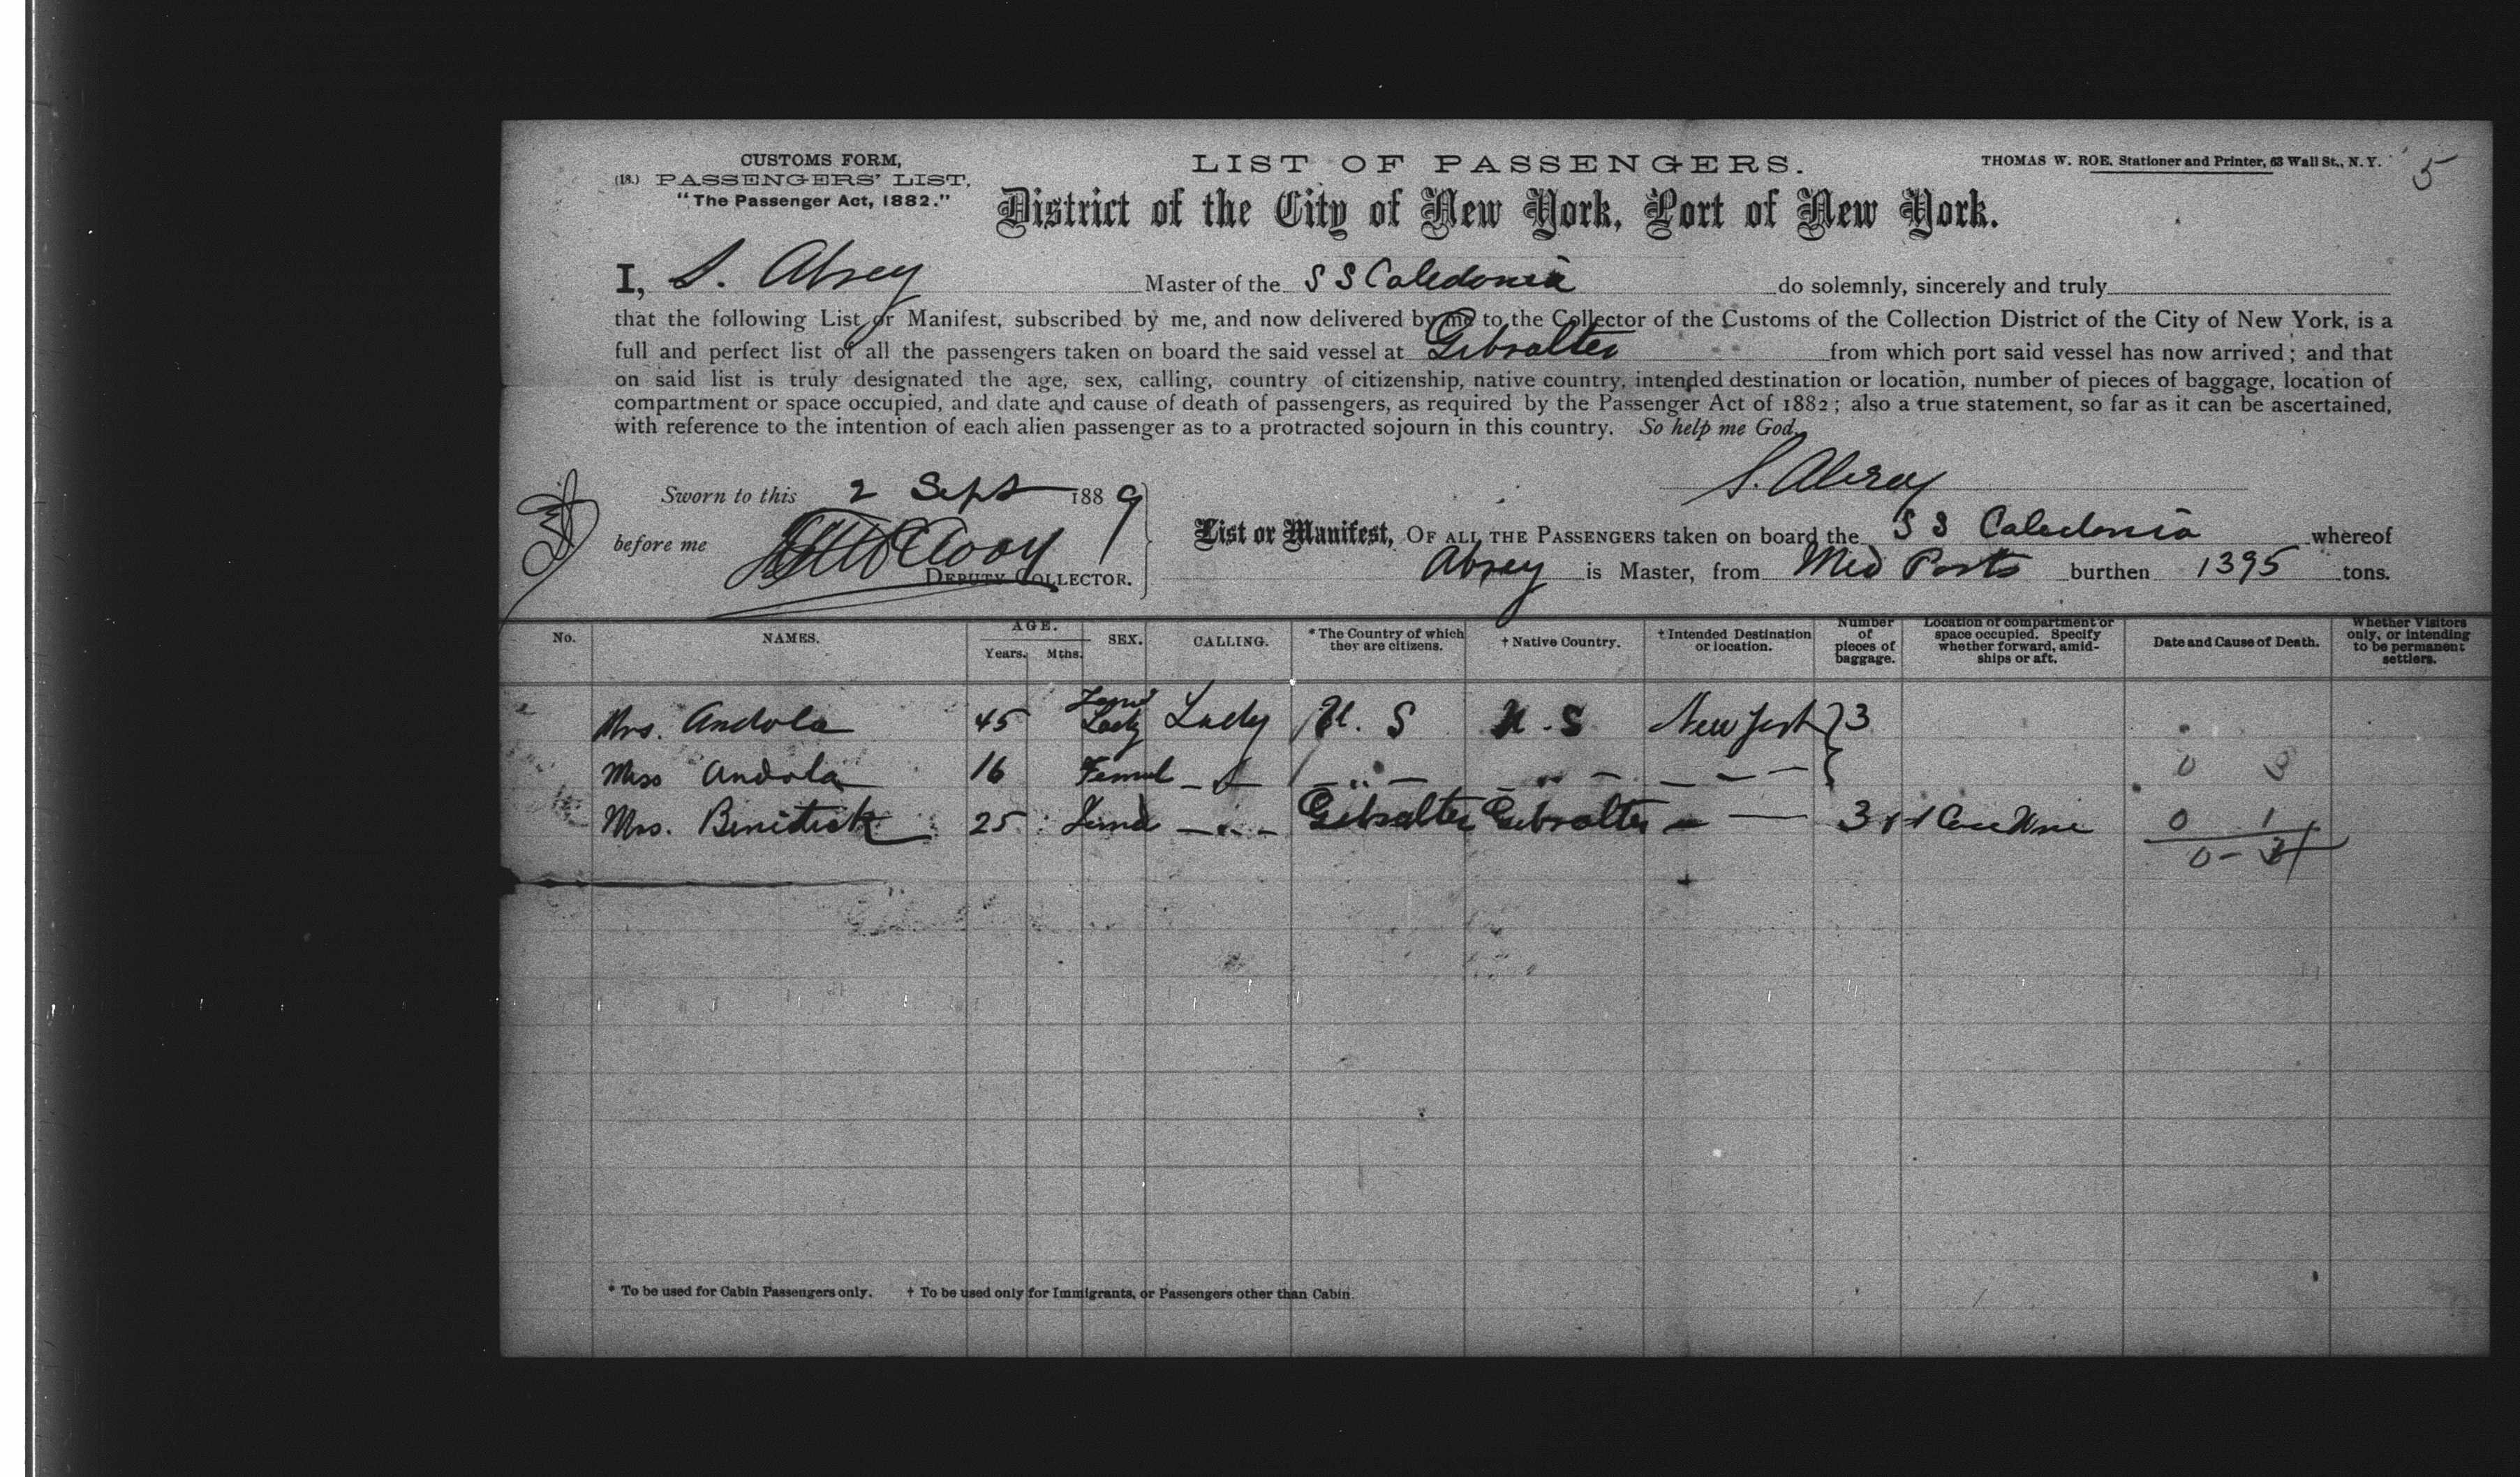 CUSTOMS FORM,
(18.) PASSENGERS' LIST,
"The Passenger Act, 1882."
LIST OF PASSENGERS.
THOMAS W. ROE, Stationer and Printer, 63 Wall St., N. Y.
5
District of the City of New York, Port of New York.
I, S. Absey Master of the S S Caledonia do solemnly, sincerely and truly
that the following List or Manifest, subscribed by me, and now delivered by me to the Collector of the Customs of the Collection District of the City of New York, is a
full and perfect list of all the passengers taken on board the said vessel at Gibralter from which port said vessel has now arrived; and that
on said list is truly designated the age, sex, calling, country of citizenship, native country, intended destination or location, number of pieces of baggage, location of
compartment or space occupied, and date and cause of death of passengers, as required by the Passenger Act of 1882; also a true statement, so far as it can be ascertained,
with reference to the intention of each alien passenger as to a protracted sojourn in this country. So help me God.
S. Absey
Sworn to this 2 Sept 1889
before me
DEPUTY COLLECTOR.
List or Manifest, OF ALL THE PASSENGERS taken on board the S S Caledonia whereof
Absey is Master, from Med Ports burthen 1395 tons.
No. NAMES. AGE. Years. Mths. SEX. CALLING. * The Country of which they are citizens. † Native Country. † Intended Destination or location. Number of pieces of baggage. Location of compartment or space occupied. Specify whether forward, amidships or aft. Date and Cause of Death. Whether Visitors only, or intending to be permanent settlers.
Mrs. Andola 45 Lady Lady U. S U. S New York } 3
Miss Andola 16 Femal — " — — " — — " — — — — 0 3
Mrs. Benedick 25 — " — Gibralter Gibralter — — 3 0 1
0 - 
* To be used for Cabin Passengers only. † To be used only for Immigrants, or Passengers other than Cabin.